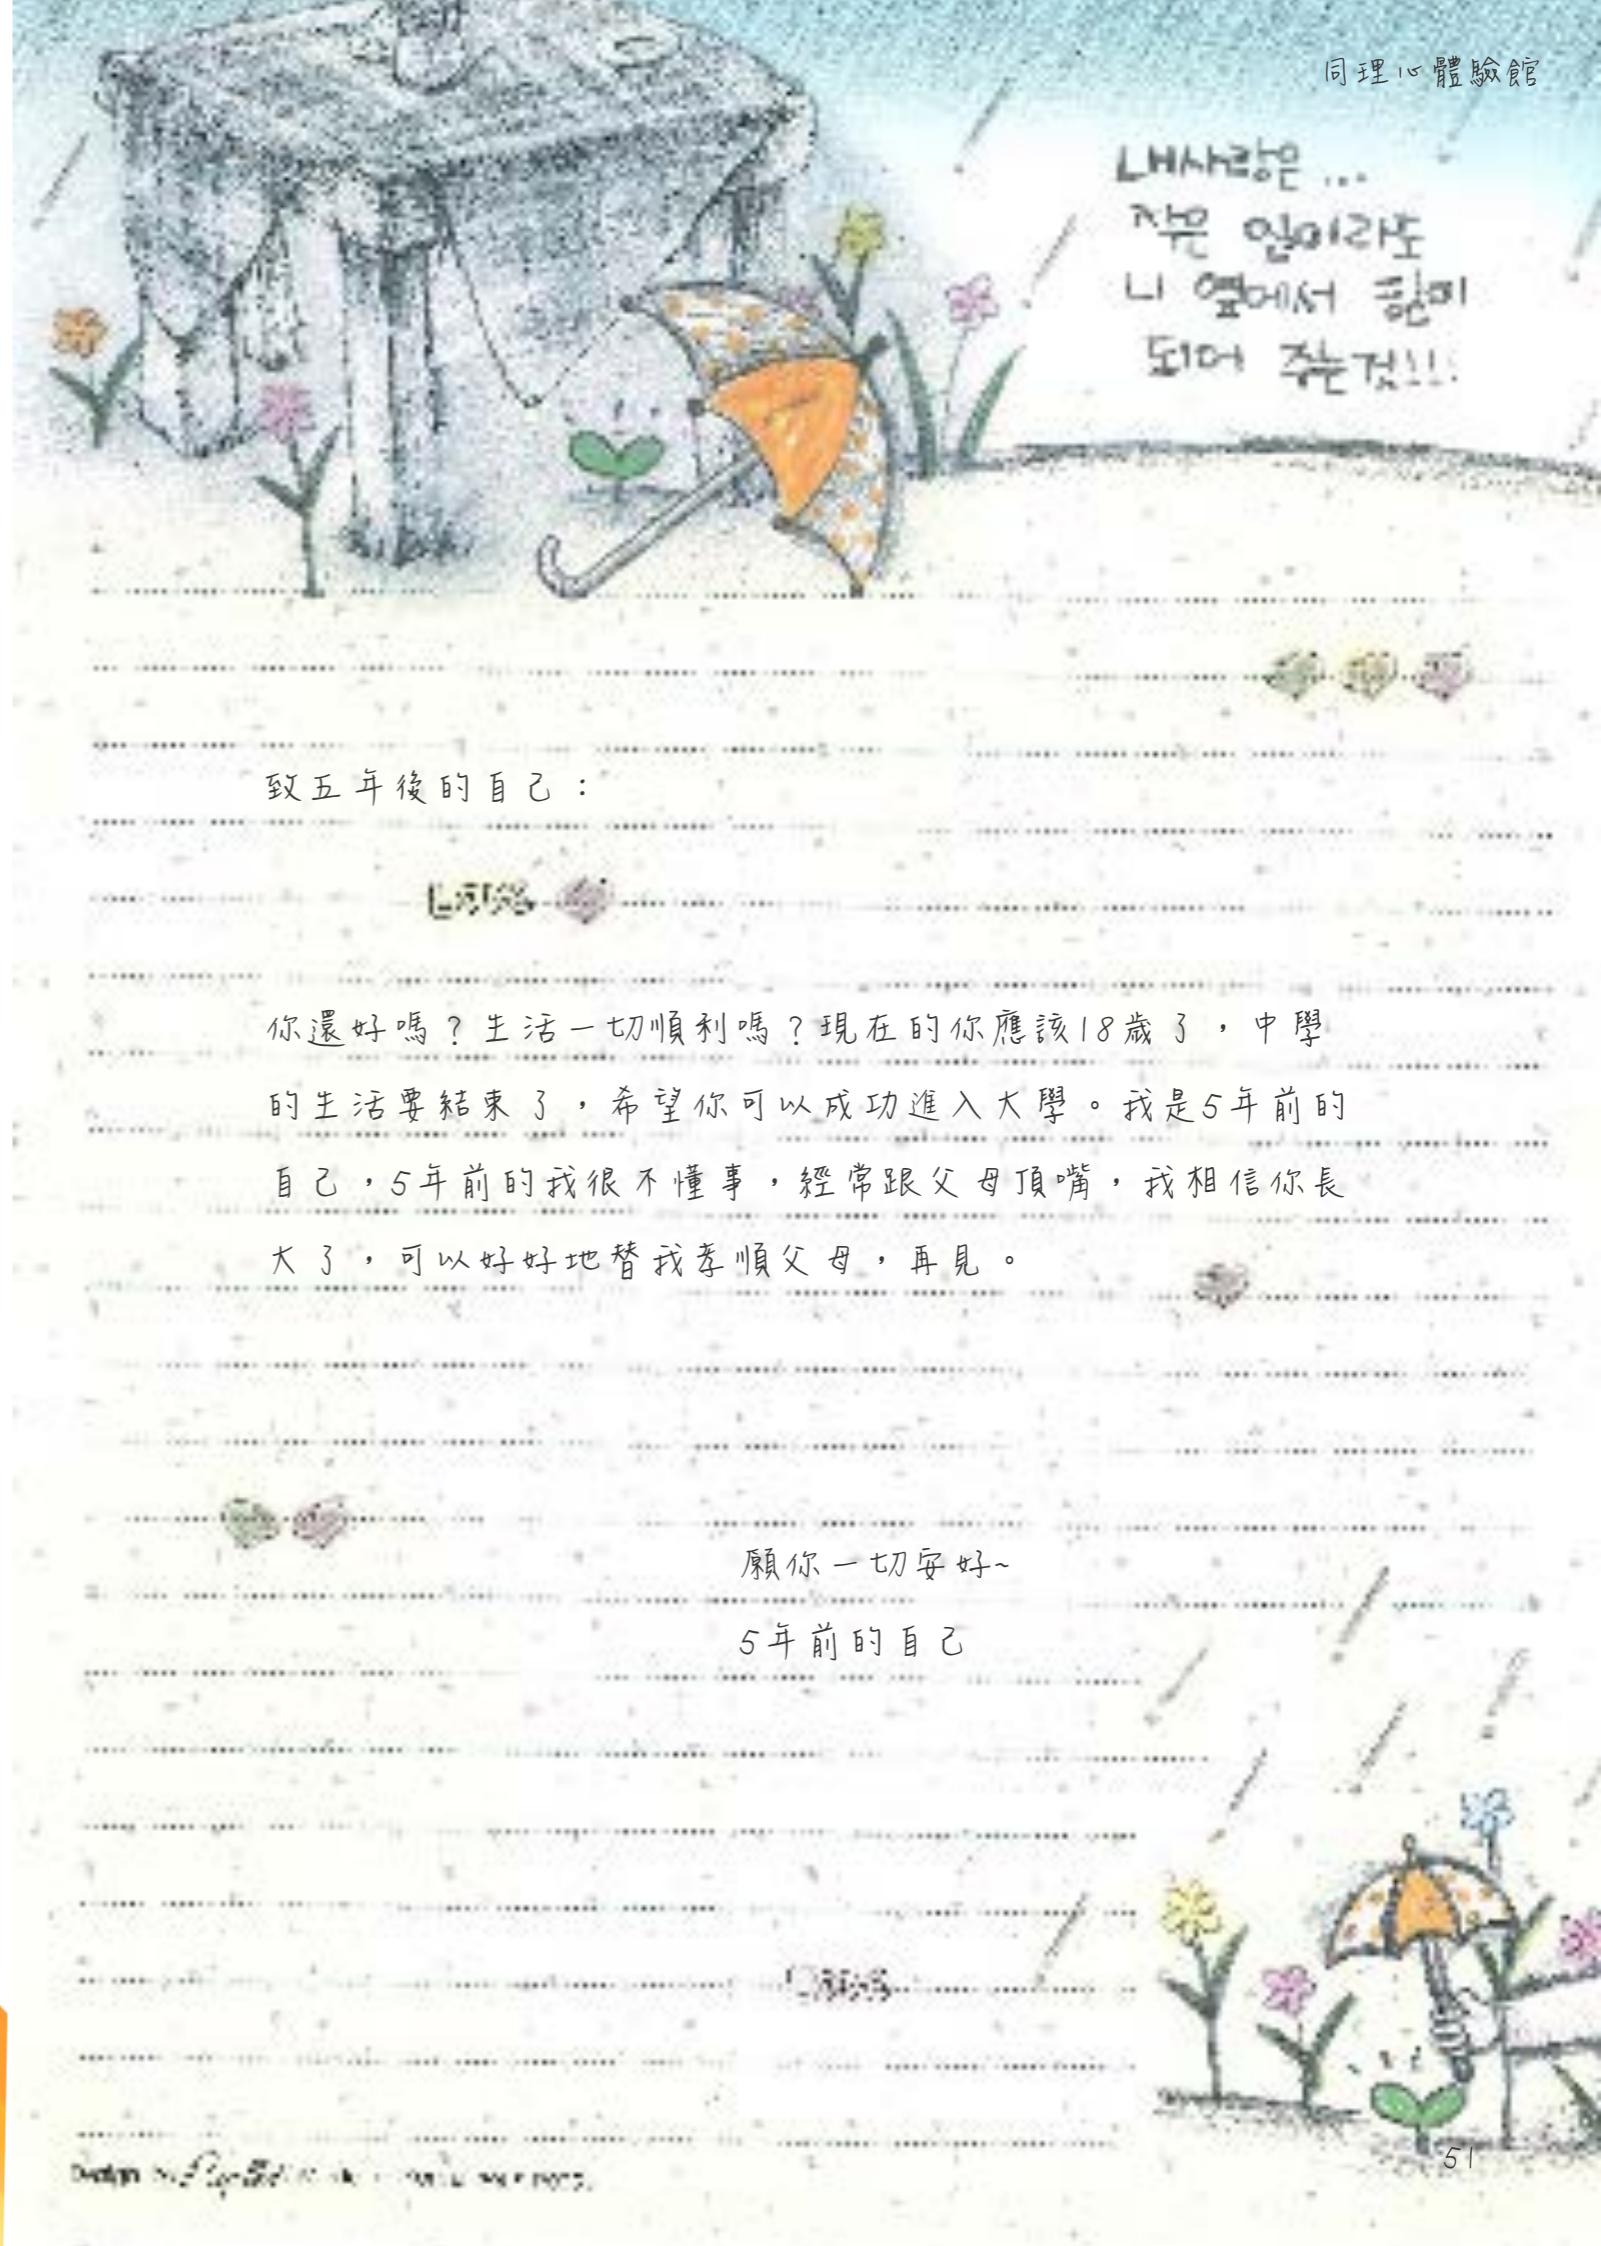 同理心體驗館
내사랑은...
작은 일이라도
니 옆에서 힘이
되어 주는것!!!
致五年後的自己：
Love
你還好嗎？生活一切順利嗎？現在的你應該18歲了，中學
的生活要結束了，希望你可以成功進入大學。我是5年前的
自己，5年前的我很不懂事，經常跟父母頂嘴，我相信你長
大了，可以好好地替我孝順父母，再見。
願你一切安好~
5年前的自己
51
Design by